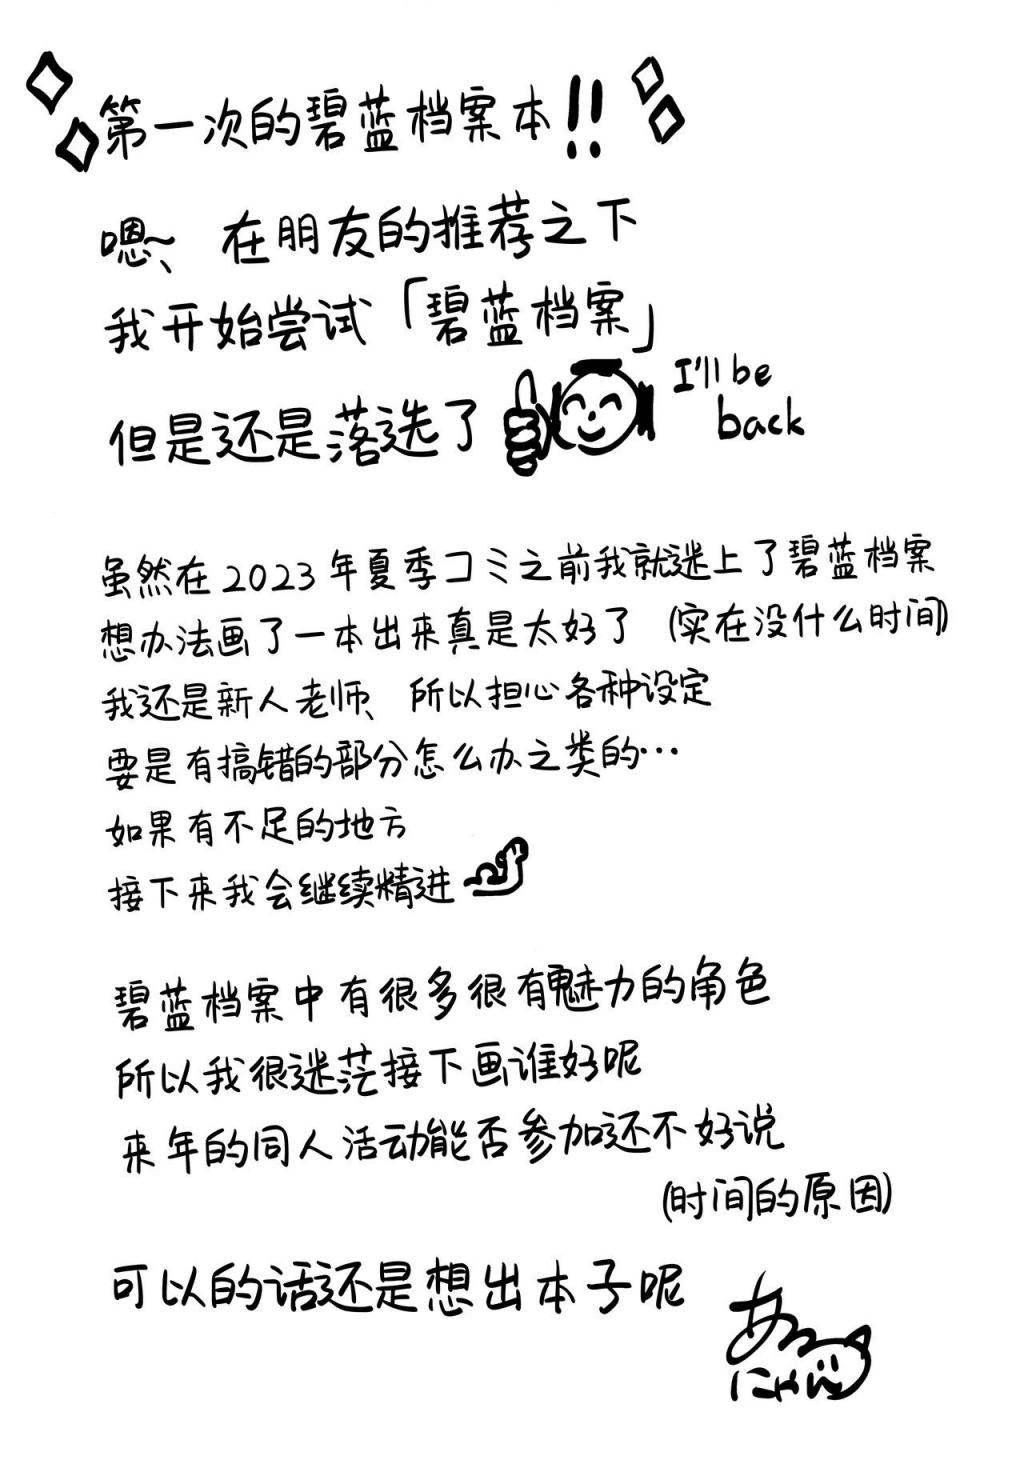 第一次的碧蓝档案本!!
嗯~、在朋友的推荐之下
我开始尝试「碧蓝档案」
但是还是落选了
I'll be
back
虽然在2023年夏季コミ之前我就迷上了碧蓝档案
想办法画了一本出来真是太好了 (实在没什么时间)
我还是新人老师、所以担心各种设定
要是有搞错的部分怎么办之类的…
如果有不足的地方
接下来我会继续精进
碧蓝档案中有很多很有魅力的角色
所以我很迷茫接下画谁好呢
来年的同人活动能否参加还不好说
(时间的原因)
可以的话还是想出本子呢
にゃん